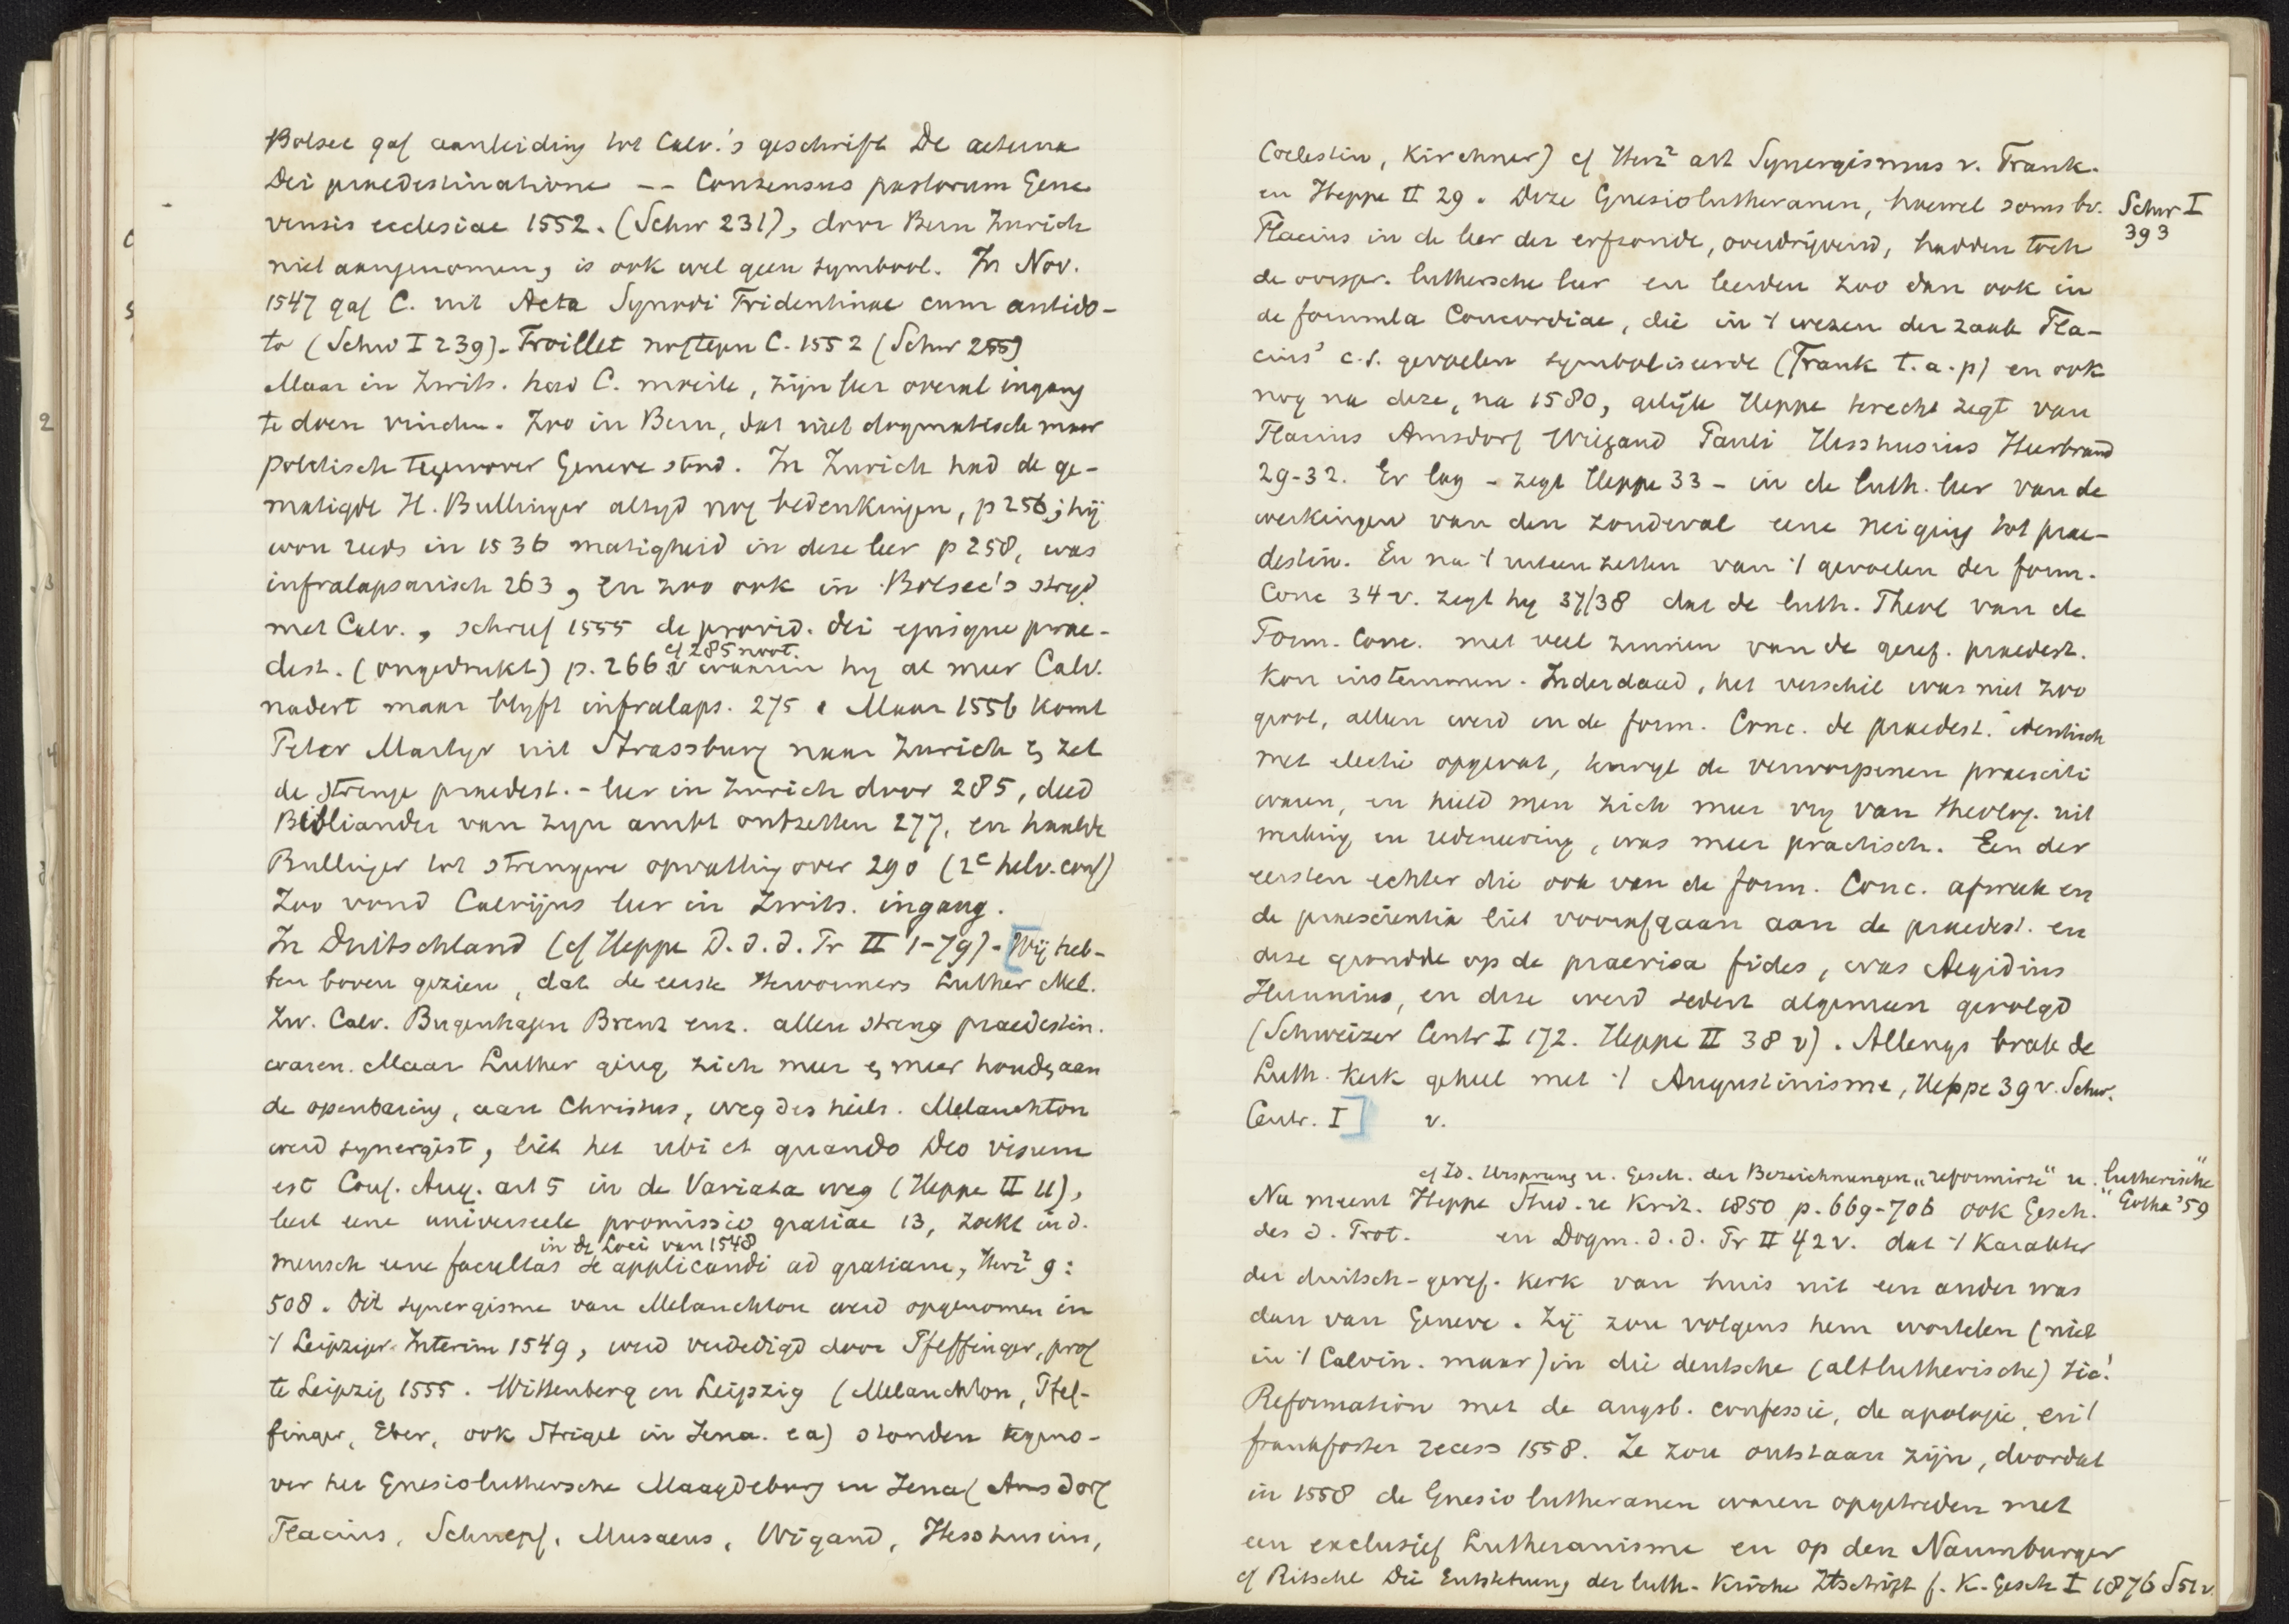 Bolsec gaf aanleiding tot Calv.'s geschrift De aeterna
Dei praedestinatione -- Consensus pastorum Gene
vensis ecclesiae 1552. (Schw 231), door Bern Zurich
niet aangenomen, is ook wel geen symbool. In Nov.
1547 gaf C. uit Acta Synodi Tridentinae cum antido-
to (Schw I 239). Troillet no tegen C. 1552 (Schw 255)
Maar in Zwits. had C. moeite, zijn leer overal ingang
te doen vinden. Zoo in Bern, dat niet dogmatisch maar
politisch tegenover Geneve stond. In Zurich had de ge-
matigde H. Bullinger altijd nog bedenkingen, p 256; hij
won reeds in 1536 matigheid in deze leer p 258, was
infralapsarisch 263, en zoo ook in Bolsec's strijd
met Calv., schreef 1555 de provid. dei ejusque prae-
cf 285 noot.
dest. (ongedrukt) p. 266 v waarin hij al meer Calv.
nadert maar blijft infralaps. 275. Maar 1556 komt
Peter Martyr uit Strassburg naar Zurich en zet
de strenge praedest.-leer in Zurich door 285, deed
Bibliander van zijn ambt ontzetten 277, en haalde
Bullinger tot strengere opvatting over 290 (2e helv. conf)
Zoo vond Calvijns leer in Zwits. ingang.
In Duitschland (cf Heppe D. d. d. Pr II 1-79). [Wij heb-
ben boven gezien, dat de eerste Hervormers Luther Mel.
Zw. Calv. Bugenhagen Brenz enz. allen streng praedestin.
waren. Maar Luther ging zich meer en meer houden aan
de openbaring, aan Christus, weg des heils. Melanchton
werd synergist, liet het ubi et quando Deo visum
est Conf. Aug. art 5 in de Variata weg (Heppe II 11),
leert eene universeele promissio gratiae 13, zoekt in d.
in de Loci van 1548
mensch eene facultas se applicandi ad gratiam, Herz² 9:
508. Dit synergisme van Melanchton werd opgenomen in
't Leipziger Interim 1549, werd verdedigd door Pfeffinger, prof
te Leipzig 1555. Wittenberg en Leipzig (Melanchton, Pfef-
finger, Eber, ook Strigel in Jena. ea) stonden tegeno-
ver het Gnesioluthersche Maagdeburg en Jena (Amsdorf
Flacius, Schnepf, Musaeus, Wigand, Hesshusius,
Coelestin, Kirchner) cf Herz² art Synergismus v. Frank.
en Heppe II 29. Deze Gnesiolutheranen, hoewel soms bv.
Schw I
393
Flacius in de leer der erfzonde, overdrijvend, hadden toch
de oorspr. luthersche leer en leerden zoo dan ook in
de formula Concordiae, die in 't wezen der zaak Fla-
cius' c.s. gevoelen symboliseerde (Frank t.a.p) en ook
nog na deze, na 1580, gelijk Heppe terecht zegt van
Flacius Amsdorf Wigand Pauli Hesshusius Heerbrand
29-32. Er lag - zegt Heppe 33 - in de luth. leer van de
werkingen van den zondeval eene neiging tot prae-
destin. En na 't uiteenzetten van 't gevoelen der form.
Conc 34 v. zegt hij 37/38 dat de luth. Theol van de
Form. Conc. met veel zinnen van de geref. praedest.
kon instemmen. Inderdaad, het verschil was niet zoo
groot, alleen werd in de form. Conc. de praedest. identisch
met electie opgevat, terwijl de verworpenen praesciti
waren, en hield men zich meer vrij van theolog. uit
werking en redeneering, was meer practisch. Een der
eersten echter die ook van de form. Conc. afweek en
de praescientia liet voorafgaan aan de praedest. en
deze grondde op de praevisa fides, was Aegidius
Hunnius, en deze werd sedert algemeen gevolgd
(Schweizer Centr I 172. Heppe II 38 v). Allengs brak de
Luth. Kerk geheel met 't Augustinisme, Heppe 39 v. Schw.
Centr. I] v.
cf Id. Ursprung u. Gesch. der Bezeichnungen „reformirte" u. „lutherische"
Nu meent Heppe Stud. u Krit. 1850 p. 669-706 ook Gesch.
Gotha '59
des d. Prot. en Dogm. d. d. Pr II 42 v. dat 't karakter
der duitsch-geref. kerk van huis uit een ander was
dan van Geneve. Zij zou volgens hem wortelen (niet
in 't Calvin. maar) in die deutsche (altlutherische) sic!
Reformation met de augsb. confessie, de apologie, en 't
frankforter recess 1558. Ze zou ontstaan zijn, doordat
in 1558 de Gnesiolutheranen waren opgetreden met
een exclusief Lutheranisme en op den Naumburger
cf Ritschl Die Entstehung der luth. Kirche Ztschrift f. K. Gesch I 1876 S 51 v.